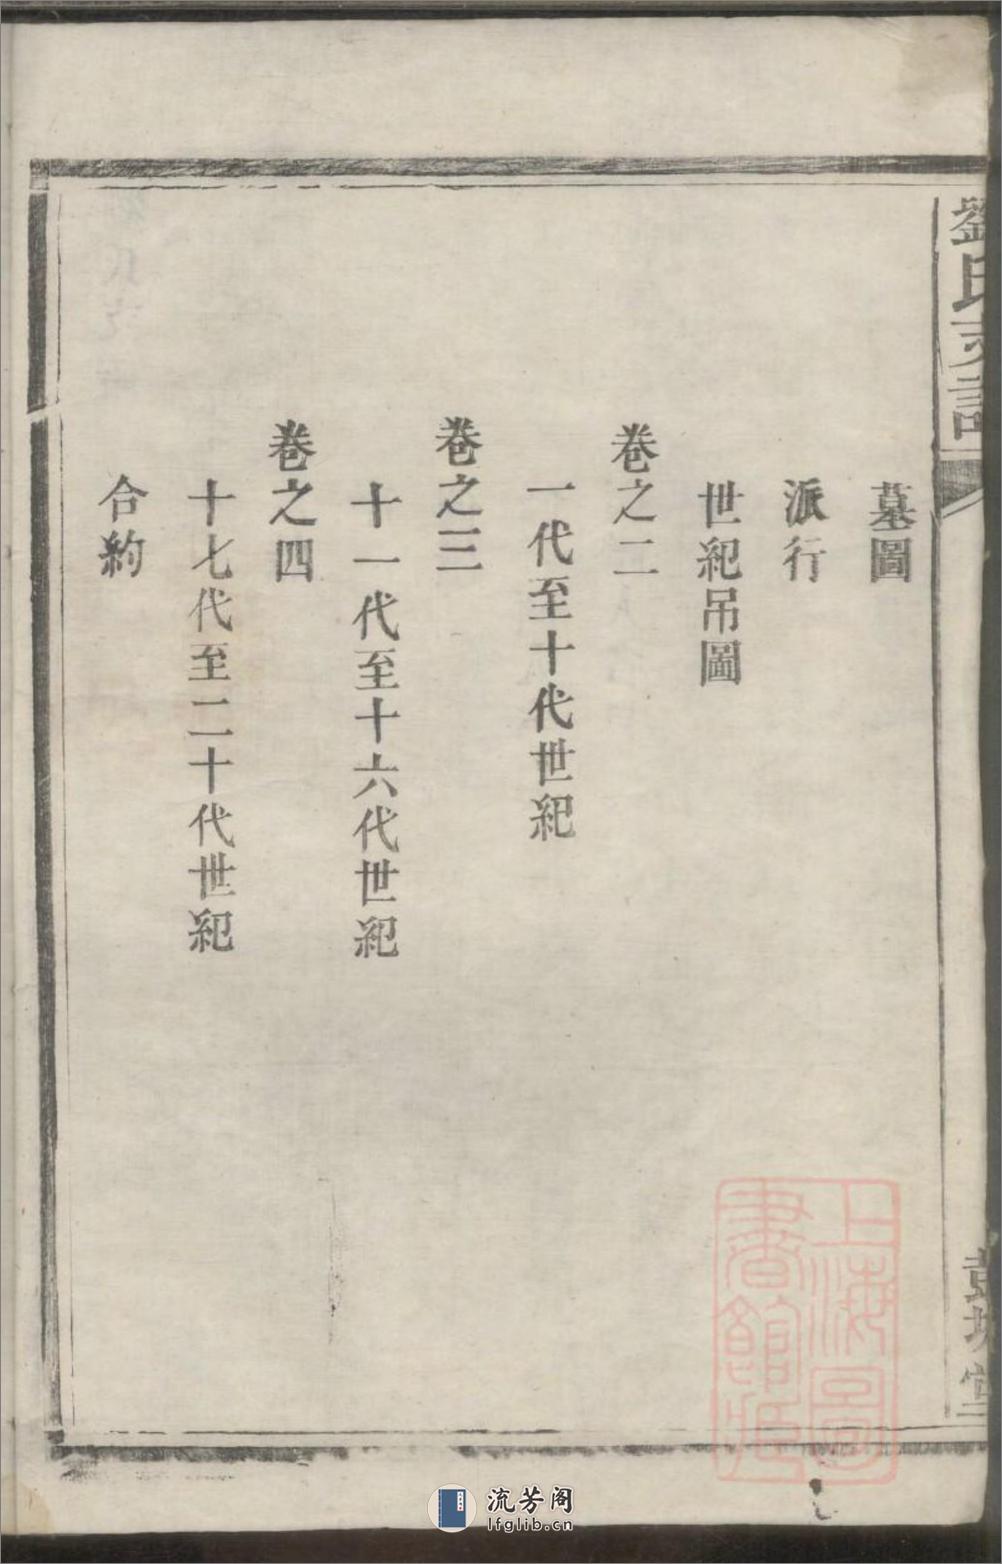 劉氏支譜
彭城堂
墓圖
派行
世紀吊圖
卷之二
一代至十代世紀
卷之三
十一代至十六代世紀
卷之四
十七代至二十代世紀
合約
上海圖
書館藏
流芳阁
lfglib.cn